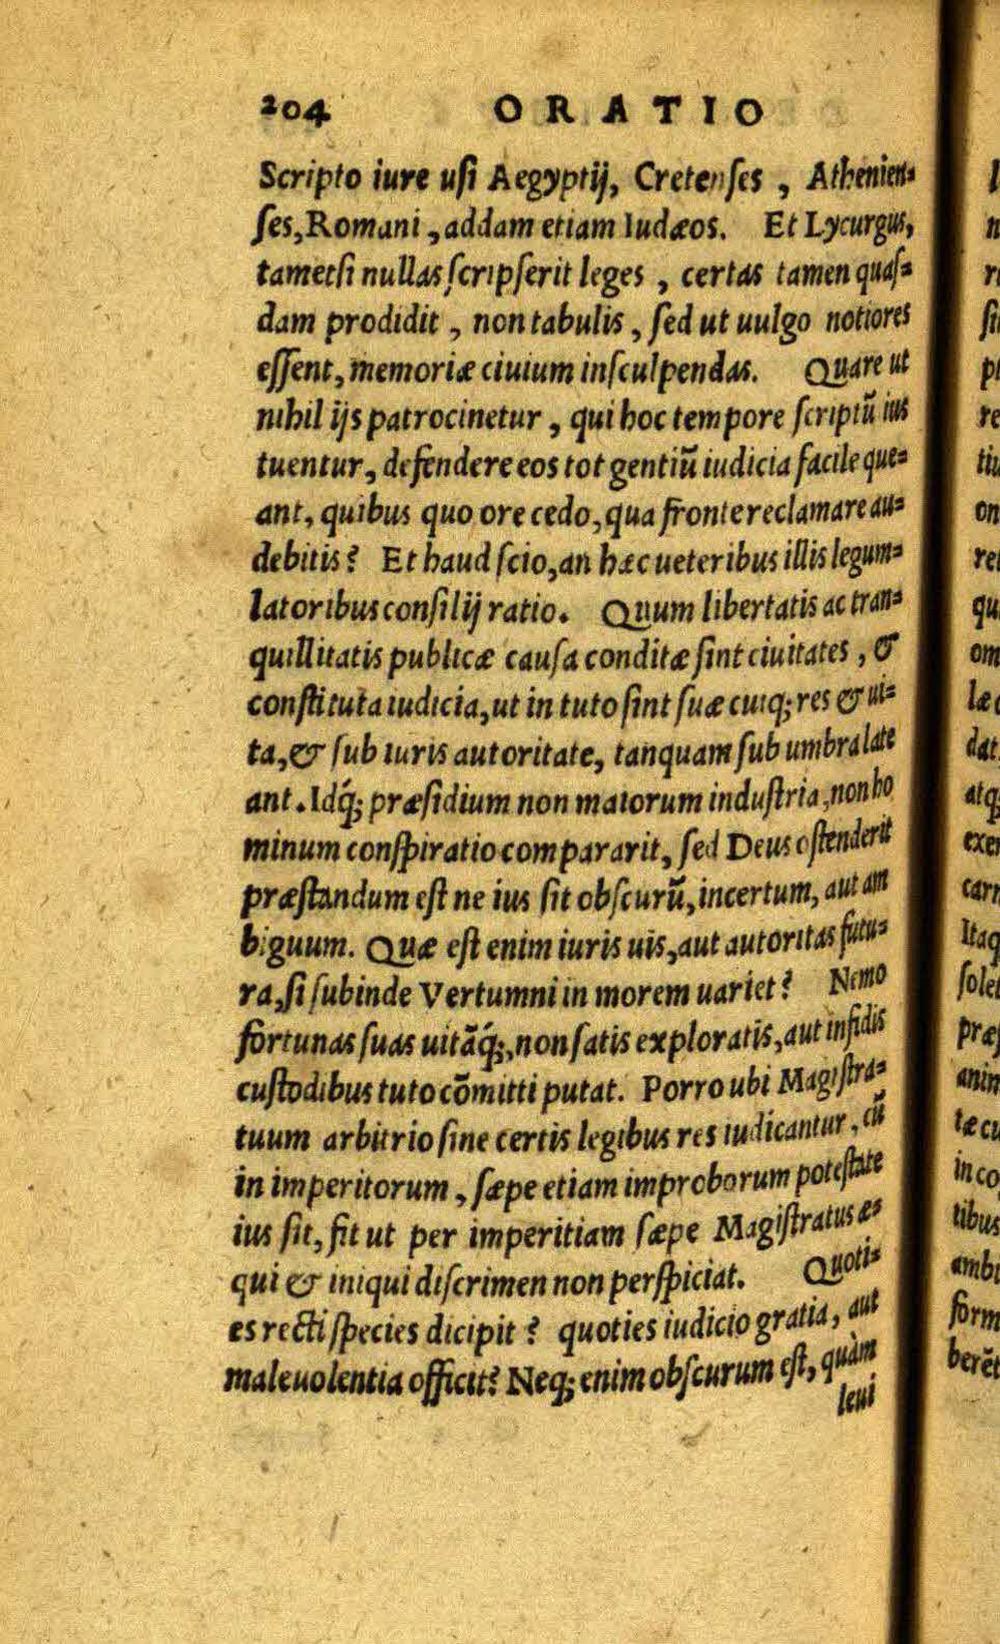 204 ORATIO
Scripto iure uſi Aegyptij, Cretenſes, Athenien⸗
ſes, Romani, addam etiam Iudæos. Et Lycurgus,
tametſi nullas ſcripſerit leges, certas tamen quaſ⸗
dam prodidit, non tabulis, ſed ut uulgo notiores
eſſent, memoriæ ciuium inſculpendas. Quare ut
nihil ijs patrocinetur, qui hoc tempore ſcriptũ ius
tuentur, defendere eos tot gentiũ iudicia facile que⸗
ant, quibus quo ore cedo, qua fronte reclamare au⸗
debitis? Et haud ſcio, an hæc ueteribus illis legum⸗
latoribus conſilij ratio. Quum libertatis ac tran⸗
quillitatis publicæ cauſa conditæ ſint ciuitates, &
conſtituta iudicia, ut in tuto ſint ſuæ cuiq; res & ui⸗
ta, & ſub iuris autoritate, tanquam ſub umbra late
ant. Idq́; præſidium non maiorum induſtria, non ho
minum conſpiratio compararit, ſed Deus oſtenderit
præſtandum eſt ne ius ſit obſcurũ, incertum, aut am
biguum. Quæ eſt enim iuris uis, aut autoritas futu⸗
ra, ſi ſubinde Vertumni in morem uariet? Nemo
fortunas ſuas uitãq́;, non ſatis exploratis, aut infidis
cuſtodibus tuto cõmitti putat. Porro ubi Magiſtra⸗
tuum arbitrio ſine certis legibus res iudicantur, cũ
in imperitorum, ſæpe etiam improborum poteſtate
ius ſit, fit ut per imperitiam ſæpe Magiſtratus æ⸗
qui & iniqui diſcrimen non perſpiciat. Quoti⸗
es recti ſpecies dicipit? quoties iudicio gratia, aut
maleuolentia officit? Neq; enim obſcurum eſt, quàm
leui